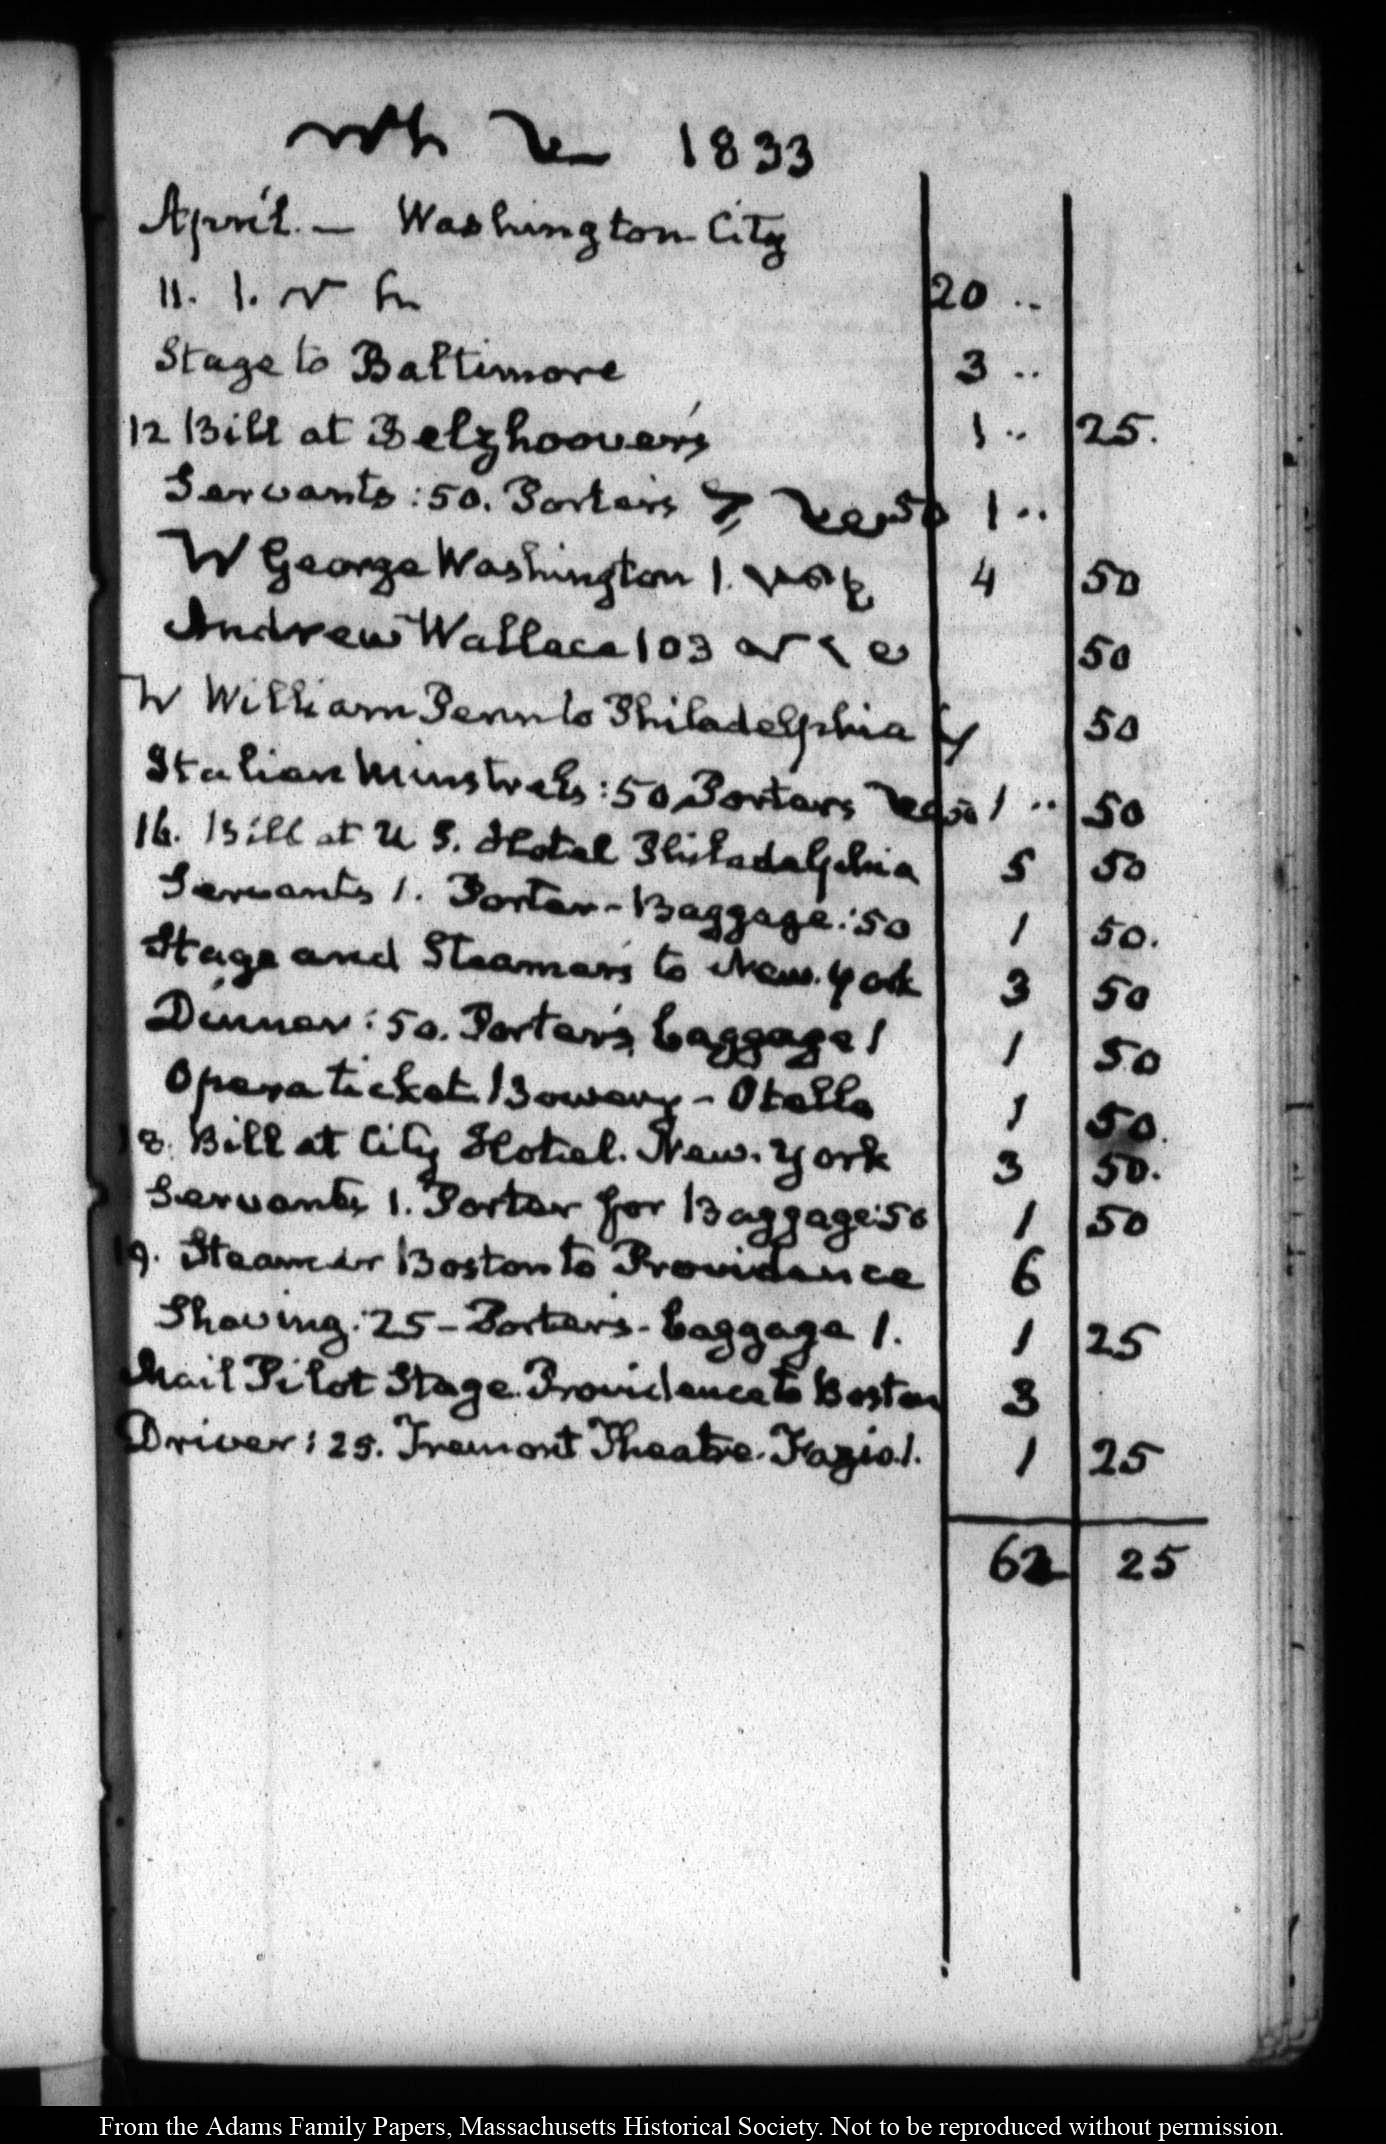 1833
April. — Washington City
11. 1. 20 ..
Stage to Baltimore 3 ..
12 Bill at Belzhoover's 1 .. 25.
Servants :50. Porters 50 1 ..
W George Washington 1. 4 50
Andrew Wallace 103 50
W William Penn to Philadelphia 50
Italian Minstrels :50 Porters 50 1 .. 50
16. Bill at U S. Hotel Philadelphia 5 50
Servants 1. Porter - Baggage :50 1 50.
Stage and Steamers to New.York 3 50
Dinner :50. Porter's baggage 1 1 50
Opera ticket Bowery - Otello 1 50.
18. Bill at City Hotel. New. York 3 50.
Servants 1. Porter for Baggage :50 1 50
19. Steamer Boston to Providence 6
Shaving :25 - Porters - baggage 1. 1 25
Mail Pilot Stage. Providence to Boston 3
Driver :25. Tremont Theatre. Fazio. 1. 1 25
62 25
From the Adams Family Papers, Massachusetts Historical Society. Not to be reproduced without permission.